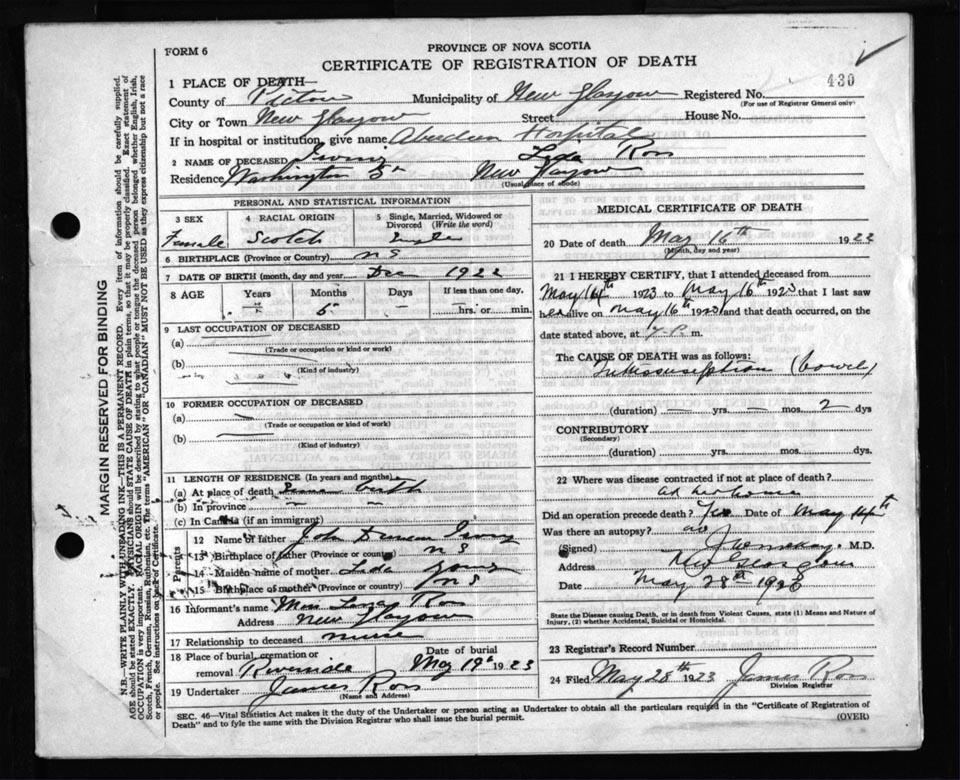 FORM 6
PROVINCE OF NOVA SCOTIA
CERTIFICATE OF REGISTRATION OF DEATH
430
1 PLACE OF DEATH—
County of Pictou Municipality of New Glasgow Registered No.
(For use of Registrar General only)
City or Town New Glasgow Street House No.
If in hospital or institution, give name Aberdeen Hospital
2 NAME OF DECEASED Lyda Ross
Residence Washington St New Glasgow
(Usual place of abode)
PERSONAL AND STATISTICAL INFORMATION
3 SEX
Female
4 RACIAL ORIGIN
Scotch
5 Single, Married, Widowed or Divorced (Write the word)
Single
6 BIRTHPLACE (Province or Country) NS
7 DATE OF BIRTH (month, day and year) Dec 1922
8 AGE Years Months Days If less than one day,
5 hrs. or min.
9 LAST OCCUPATION OF DECEASED
(a)
(Trade or occupation or kind or work)
(b)
(Kind of industry)
10 FORMER OCCUPATION OF DECEASED
(a)
(Trade or occupation or kind of work)
(b)
(Kind of industry)
11 LENGTH OF RESIDENCE (In years and months)
(a) At place of death birth
(b) In province
(c) In Canada (if an immigrant)
Parents
12 Name of father John Duncan
13 Birthplace of father (Province or country) NS
14 Maiden name of mother
15 Birthplace of mother (Province or country) NS
16 Informant's name Ross
Address New Glasgow
17 Relationship to deceased nurse
18 Place of burial, cremation or removal Riverside
Date of burial May 19th 1923
19 Undertaker James Ross
(Name and Address)
MEDICAL CERTIFICATE OF DEATH
20 Date of death May 16th 1922
(Month, day and year)
21 I HEREBY CERTIFY, that I attended deceased from
May 14th 1923 to May 16th 1923 that I last saw
her alive on May 16th 1923 and that death occurred, on the
date stated above, at 7 P. m.
The CAUSE OF DEATH was as follows:
Intussusception (bowel)
(duration) — yrs. — mos. 2 dys
CONTRIBUTORY
(Secondary)
(duration) yrs. mos. dys.
22 Where was disease contracted if not at place of death?
at her home
Did an operation precede death? Yes Date of May 14th
Was there an autopsy? no
(Signed) M.D.
Address New Glasgow
Date May 28th 1923
State the Disease causing Death, or in death from Violent Causes, state (1) Means and Nature of
Injury, (2) whether Accidental, Suicidal or Homicidal.
23 Registrar's Record Number
24 Filed May 28th 1923 James Ross
Division Registrar
SEC. 46—Vital Statistics Act makes it the duty of the Undertaker or person acting as Undertaker to obtain all the particulars required in the "Certificate of Registration of
Death" and to fyle the same with the Division Registrar who shall issue the burial permit.
(OVER)
MARGIN RESERVED FOR BINDING
N.B.—WRITE PLAINLY WITH UNFADING INK—THIS IS A PERMANENT RECORD. Every item of information should be carefully supplied.
AGE should be stated EXACTLY. PHYSICIANS should STATE CAUSE OF DEATH in plain terms, so that it may be properly classified. Exact statement of
OCCUPATION is very important. RACIAL ORIGIN will be described by stating to what people or tongue the deceased person belonged whether English, Irish,
Scotch, French, German, Russian, Ruthenian, etc. The terms "AMERICAN" or "CANADIAN" MUST NOT BE USED as they express citizenship but not a race
or people. See instructions on back of Certificate.